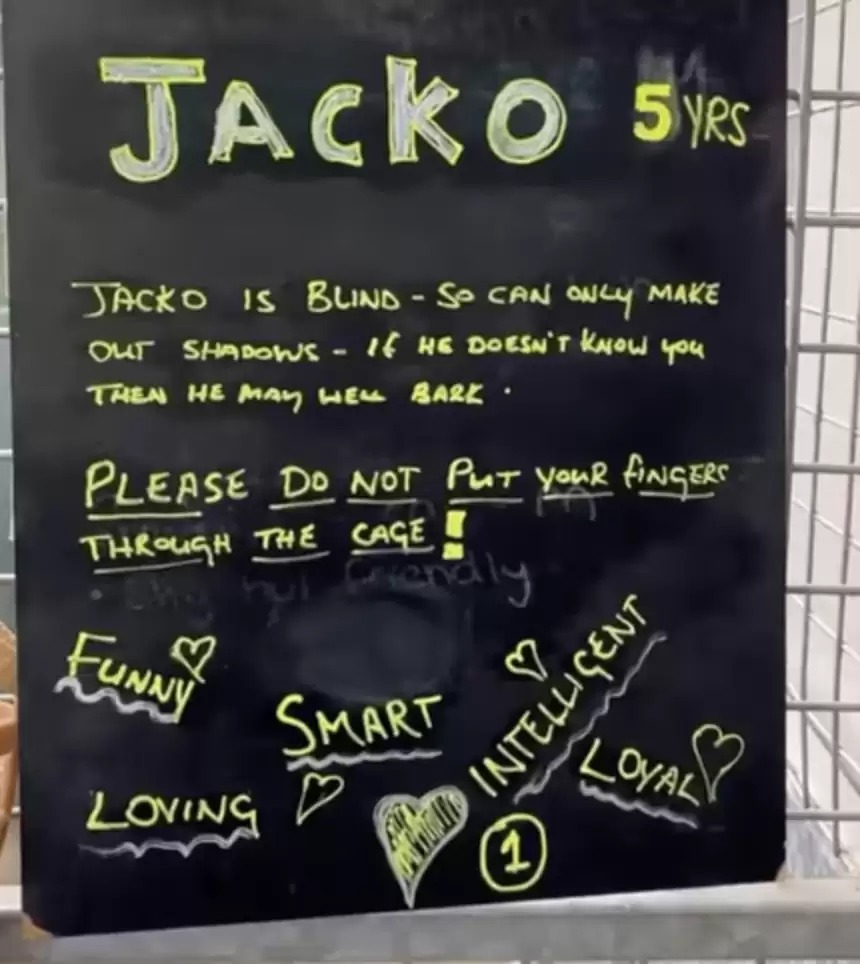 JACKO 5 YRS
JACKO IS BLIND - SO CAN ONLY MAKE
OUT SHADOWS - IF HE DOESN'T KNOW YOU
THEN HE MAY WELL BARK.
PLEASE DO NOT PUT YOUR FINGERS
THROUGH THE CAGE!
Shy but friendly
FUNNY
SMART
INTELLIGENT
LOYAL
LOVING
1